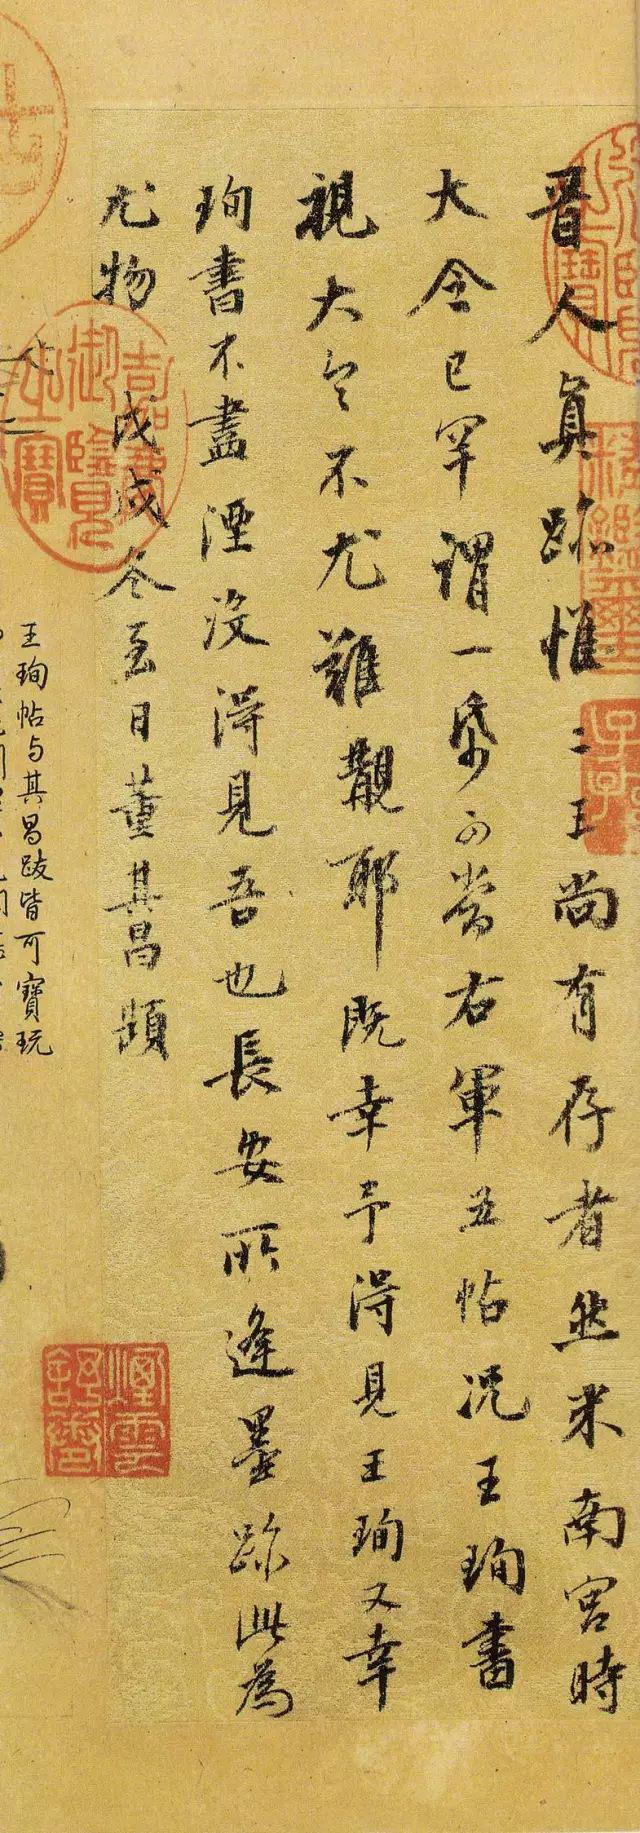 晋人真跡惟二王尚有存者然米南宮時
大令已罕謂一帋可當右軍五帖況王珣書
視大令不尤難覯耶既幸予得見王珣又幸
珣書不盡湮沒得見吾也長安所逢墨跡此為
尤物 戊戌冬至日董其昌題
王珣帖与其昌跋皆可寶玩
嘉慶御覽之寶
煙雲